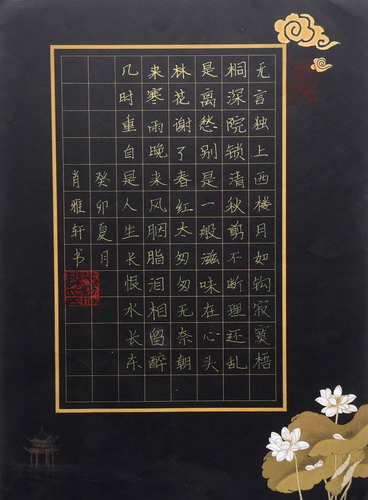 无言独上西楼月如钩寂寞梧
桐深院锁清秋剪不断理还乱
是离愁别是一般滋味在心头
林花谢了春红太匆匆无奈朝
来寒雨晚来风胭脂泪相留醉
几时重自是人生长恨水长东
癸卯夏月
肖雅轩书